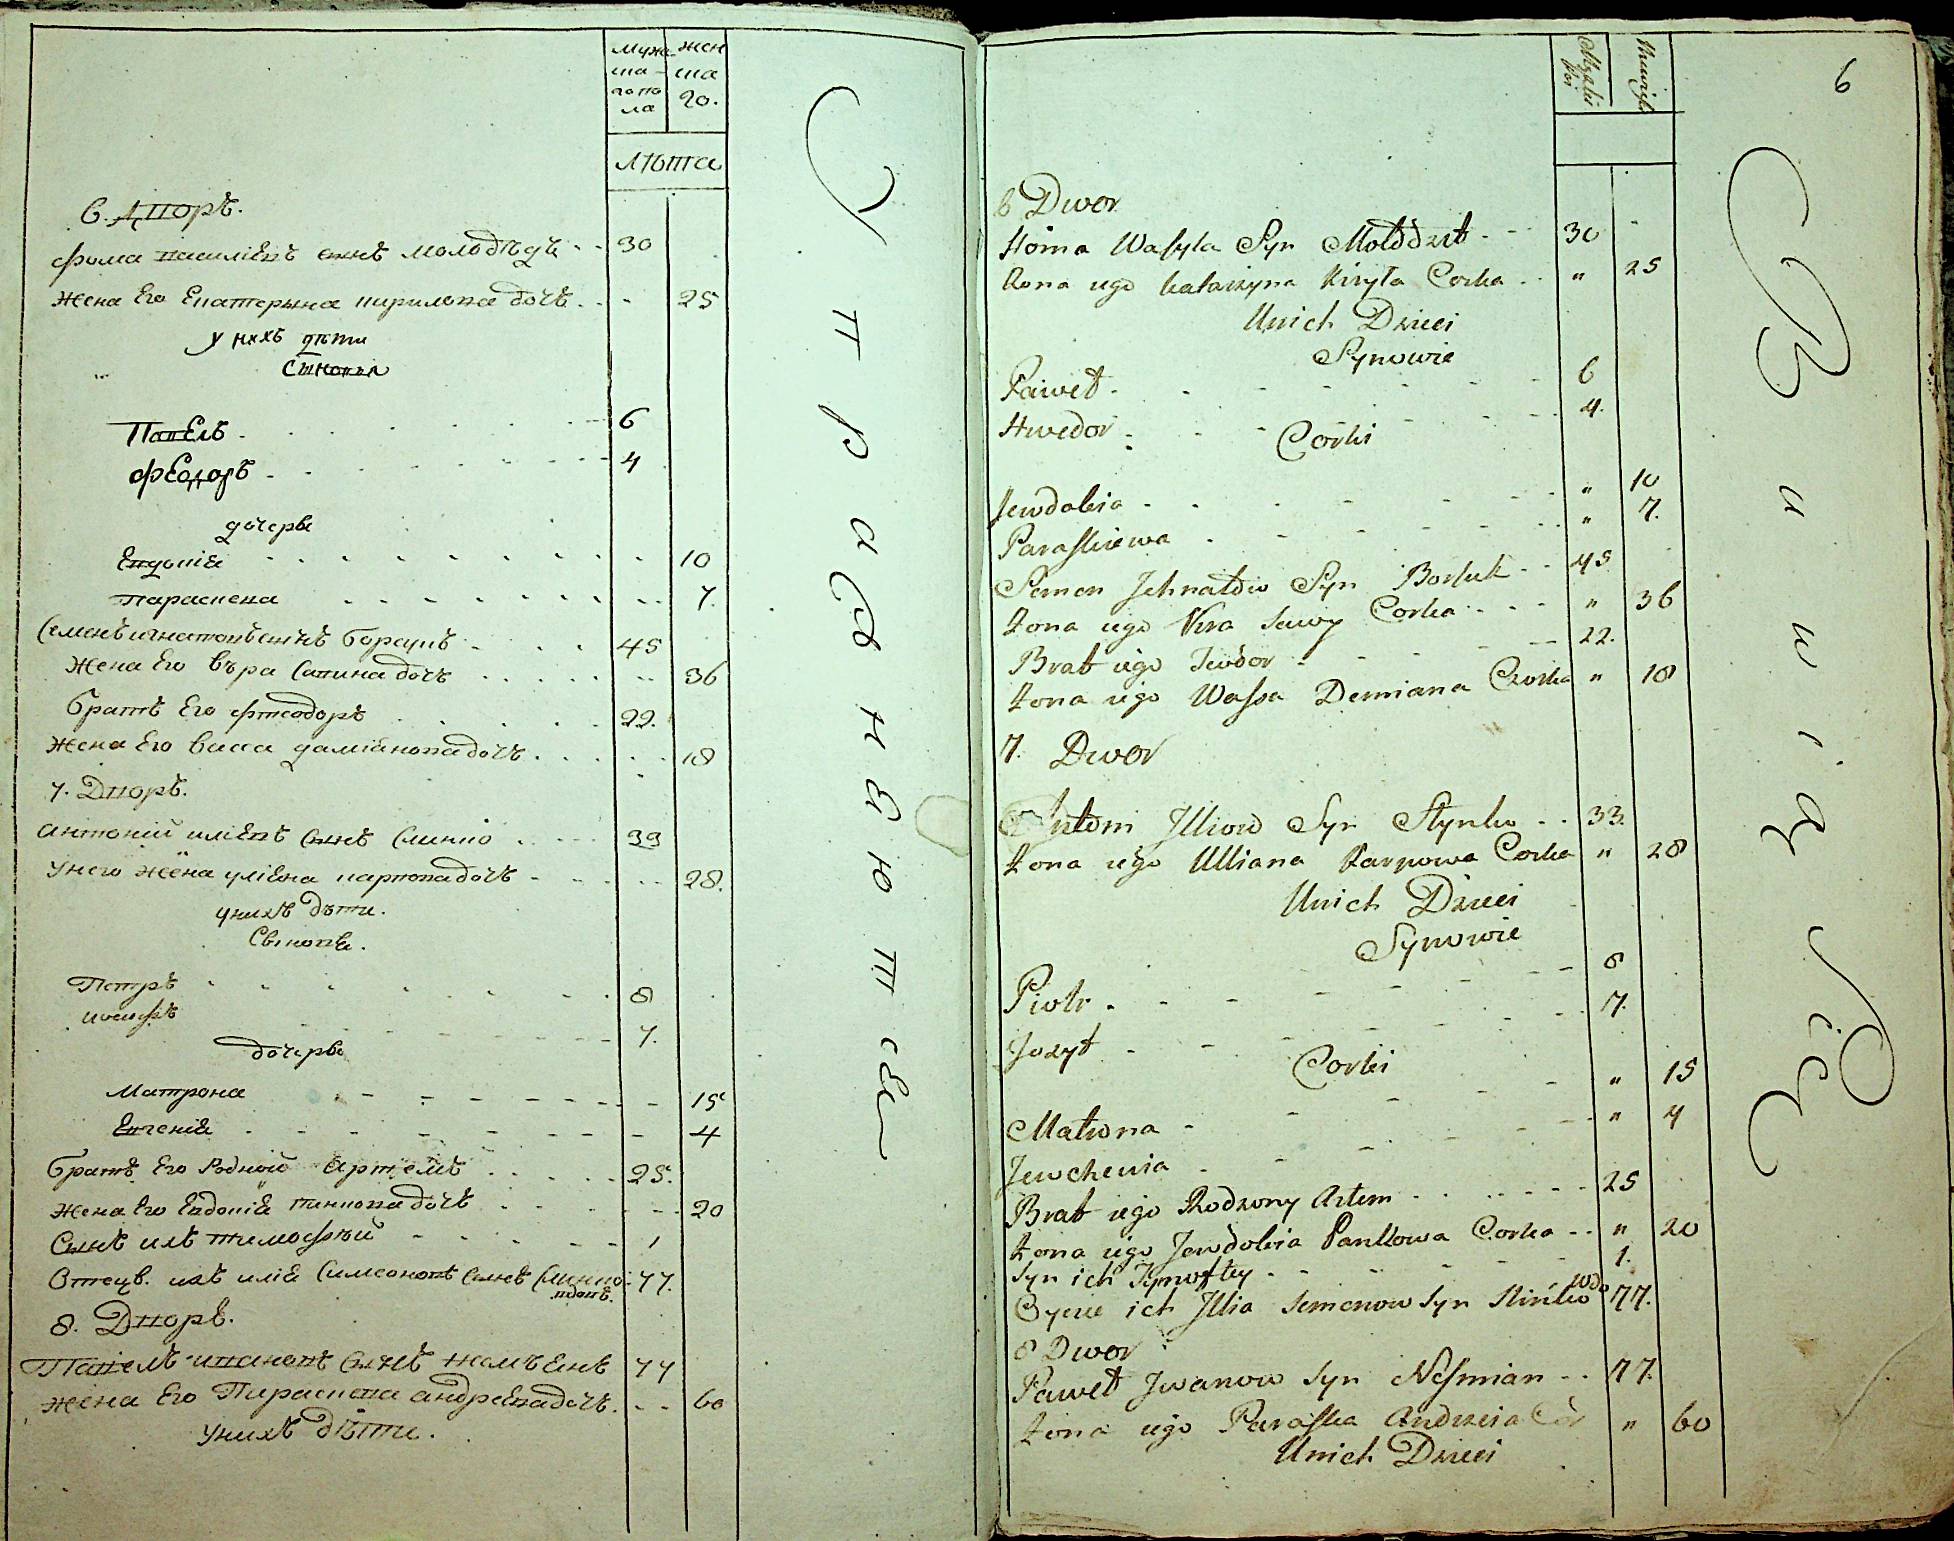 мужа- жен
ска- ска
го по го.
ла
лѣта
6. Дворъ.
Фома василіевъ сынъ молодѣдъ 30
жена Его Екатерына кирилова дочъ 25
у нихъ дѣти
Сынови
Павелъ 6
Феодоръ 4
дочерѣ
Евдокіѣ 10
параскева 7.
Семенъ игнатовъ сынъ борсукъ 45
Жена Его вѣра Савина дочъ 36
братъ Его фтеодоръ 22.
жена Его васса даміянова дочъ 18
7. Дворъ.
антоній иліевъ сынъ Слинко 33
у него жена уліяна карпова дочъ 28.
у нихъ дѣти.
Сынове.
Петръ 8
иосифъ 7.
дочерѣ
Матрона 15
Евгеніѣ 4
братъ Его Родный артемъ 25.
жена Его Евдокіѣ панкова дочъ 20
Сынъ ихъ тимофѣй 1
Отецъ. ихъ иліѣ Симеоновъ сынъ Слинко 77.
вдовъ.
8. Дворъ.
Павелъ ивановъ сынъ 77
жена Его Параскева андрѣева дочъ. 60
у нихъ дѣти.
Управнеют сея
6
6 Dwor
Homa Wasyla Syn Mołodzid 30
Żona iego katarzyna kiryła Corka " 25
Unich Dzieci
Synowie
Paweł 6
Hwedor 4.
Corki
Jewdokia " 10
Paraskiewa " 7.
Semen Jehnatów Syn Borsuk 45
Żona iego Vera Sawy Corka " 36
Brat iego Fewdor 22.
Żona iego Wassa Demiana Czorka " 18
7. Dwor
Antom Jlliow Syn Slynko 33.
Żona iego Ulliana Karpowa Corka " 28
Unich Dzieci
Synowie
Piotr 8
Jozyf 7.
Corki
Matrona " 15
Jewchenia " 4
Brat iego Rodzony Artem 25
Żona iego Jewdokia Pankowa Corka " 20
Syn ich Tymoftey 1.
Oycie ich Jllia Semenow Syn Slinko wdo 77.
8 Dwor
Paweł Jwanow Syn Nesmian 77.
Żona iego Paraska Andreia Cór " 60
Unich Dzieci